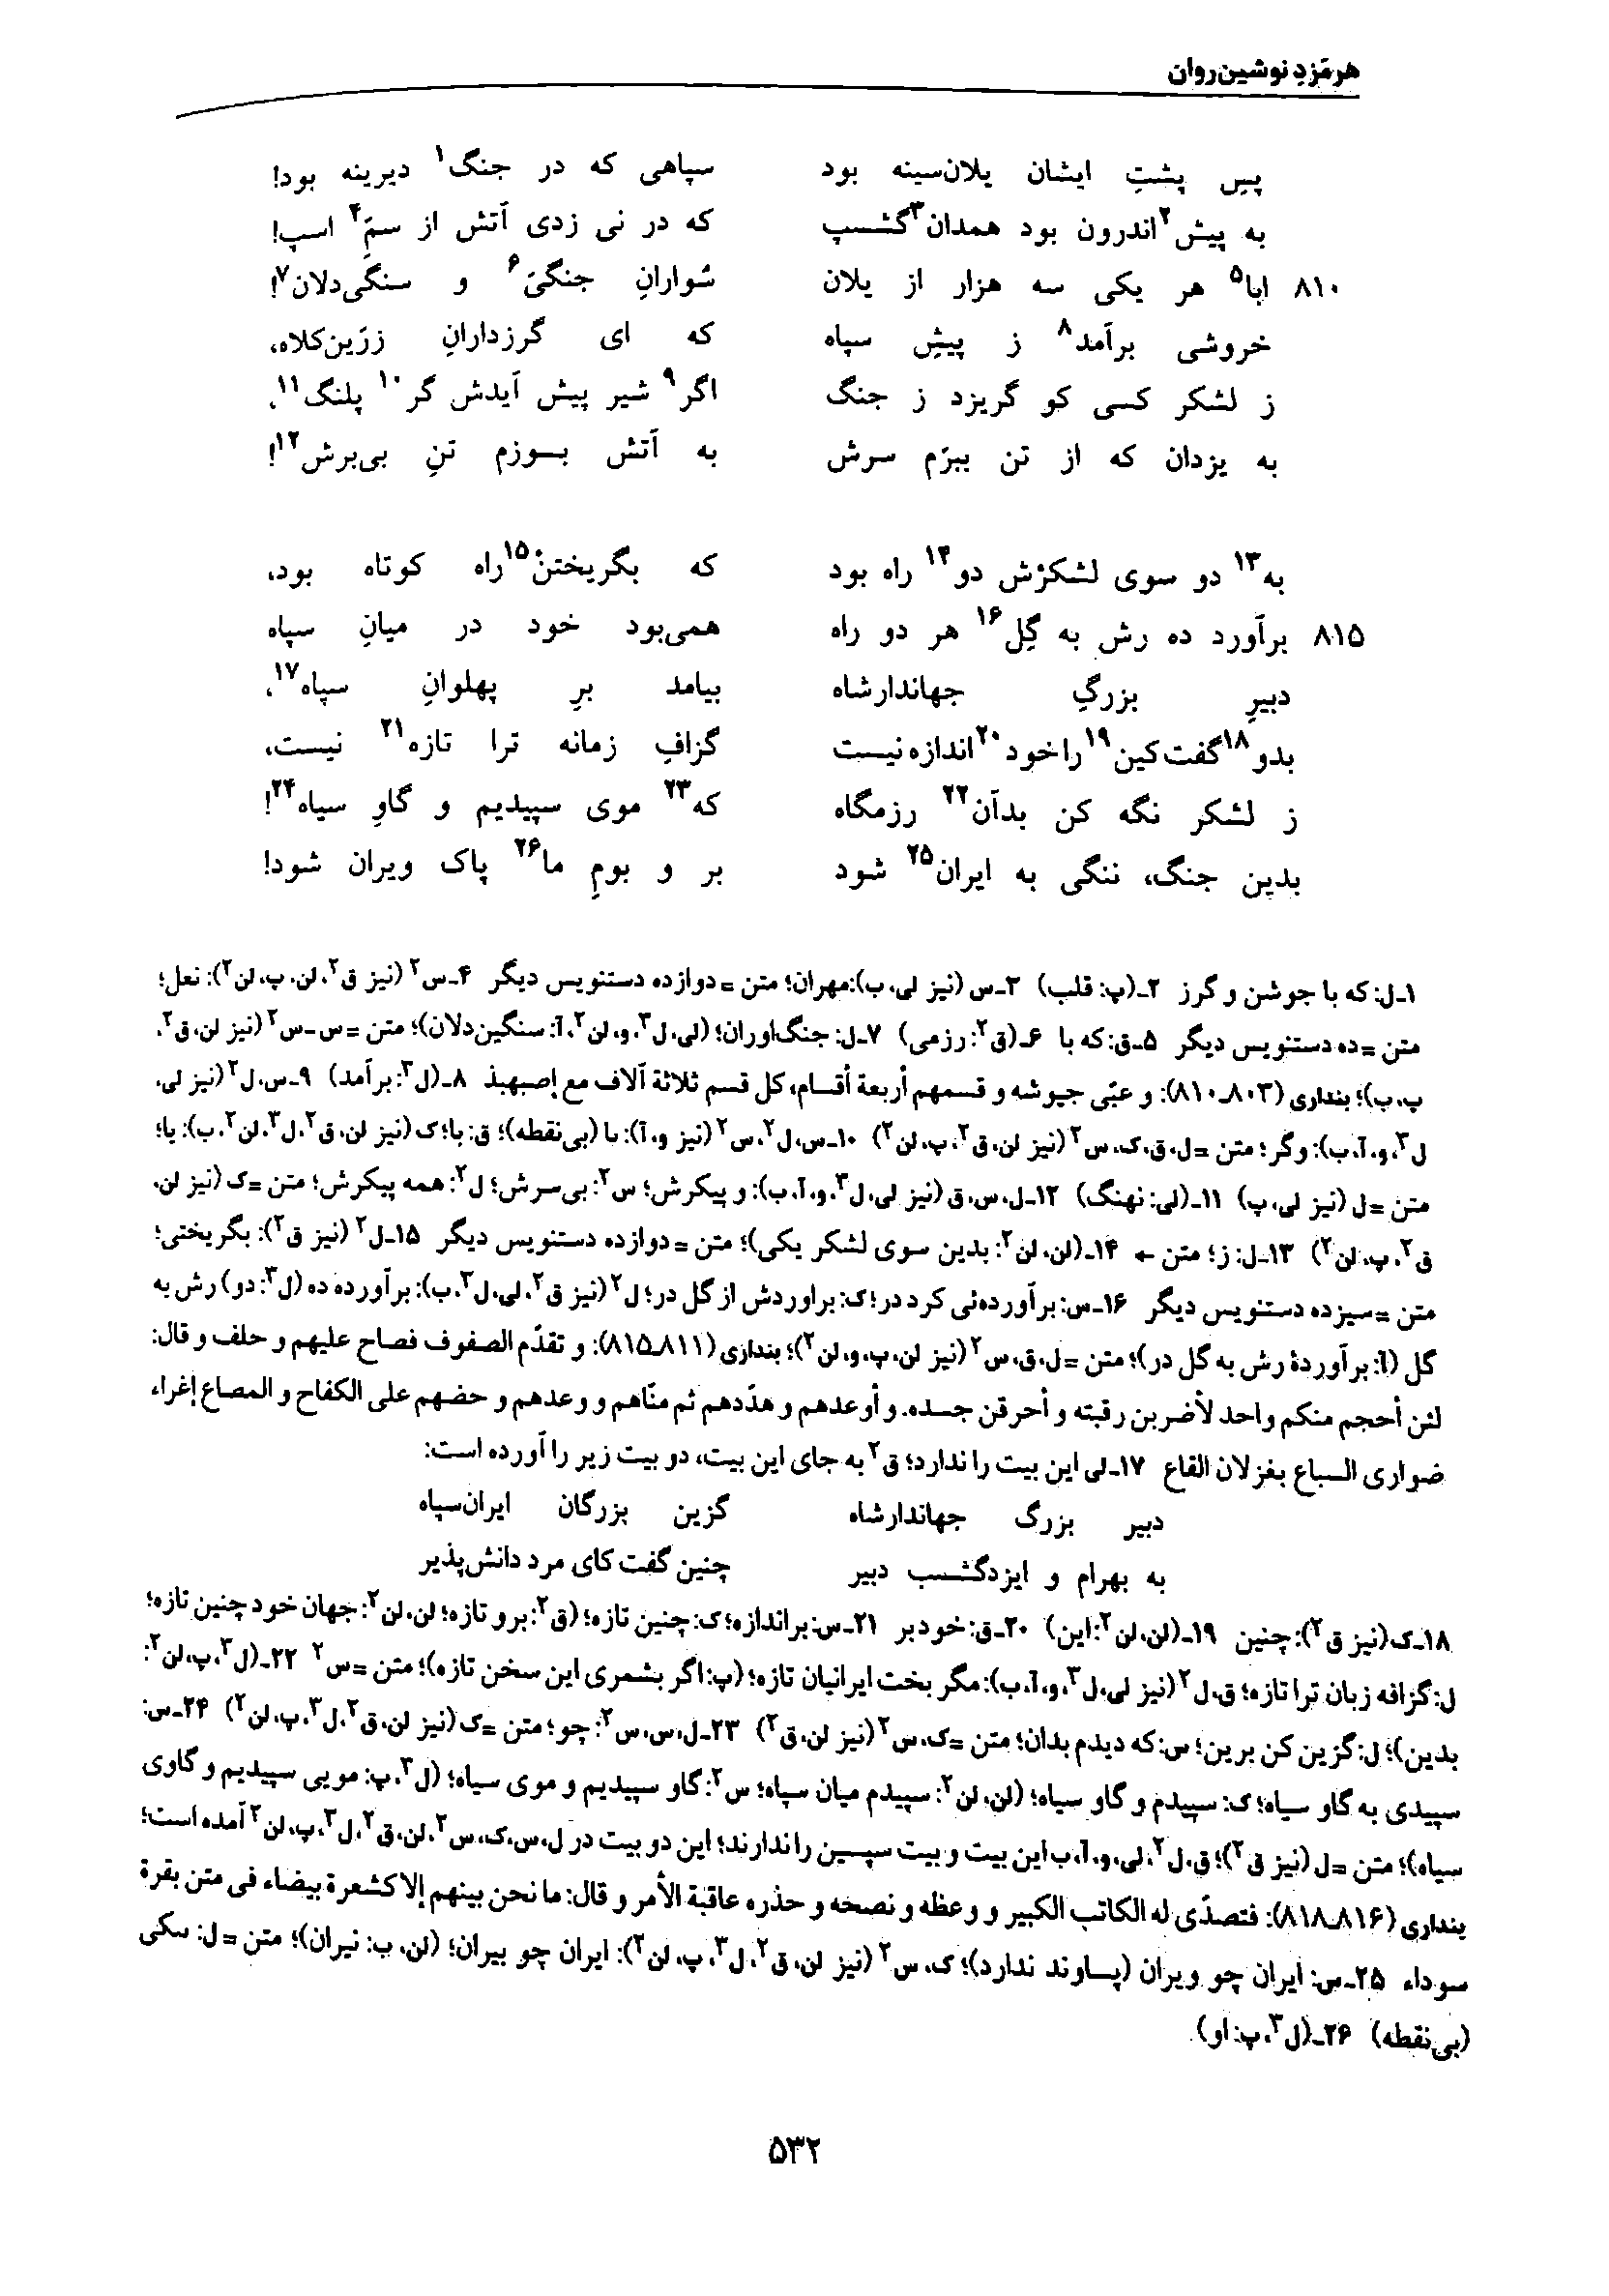 هرمَزدِ نوشین‌روان
پسِ پشتِ ایشان یلان‌سینه بود سپاهی که در جنگ۱ دیرینه بود!
به پیش۲ اندرون بود همدان۳ گشسپ که در نی زدی آتش از سمّ۴ اسپ!
۸۱۰ ابا۵ هر یکی سه هزار از یلان سُوارانِ جنگیّ۶ و سنگی‌دلان۷!
خروشی برآمد۸ ز پیشِ سپاه که ای گرزدارانِ زرّین‌کلاه،
ز لشکر کسی کو گریزد ز جنگ اگر۹ شیر پیش آیدش گر۱۰ پلنگ۱۱،
به یزدان که از تن ببرّم سرش به آتش بسوزم تنِ بی‌برش۱۲!
به۱۳ دو سوی لشکرْش دو۱۴ راه بود که بگریختن۱۵ راه کوتاه بود،
۸۱۵ برآورد ده رش به گِل۱۶ هر دو راه همی‌بود خود در میانِ سپاه
دبیرِ بزرگِ جهاندارشاه بیامد برِ پهلوانِ سپاه۱۷،
بدو۱۸ گفت کین۱۹ را خود۲۰ اندازه نیست گزافِ زمانه ترا تازه۲۱ نیست،
ز لشکر نگه کن بدآن۲۲ رزمگاه که۲۳ موی سپیدیم و گاوِ سیاه۲۴!
بدین جنگ، ننگی به ایران۲۵ شود بر و بومِ ما۲۶ پاک ویران شود!
۱ـ ل: که با جوشن و گرز ۲ـ (پ: قلب) ۳ـ س (نیز لی، ب): مهران؛ متن = دوازده دستنویس دیگر ۴ـ س۲ (نیز ق۲، لن، پ، لن۲): نعل؛
متن = ده دستنویس دیگر ۵ـ ق: که با ۶ـ (ق۲: رزمی) ۷ـ ل: جنگ‌آوران؛ (لی، ل۳، و، لن۲، آ: سنگین‌دلان)؛ متن = س ـ س۲ (نیز لن، ق۲،
پ، ب)؛ بنداری (۸۰۳ـ۸۱۰): و عبّی جیوشه و قسمهم أربعة أقسام، کل قسم ثلاثة آلاف مع إصبهبذ ۸ـ (ل۳: برآمد) ۹ـ س، ل۲ (نیز لی،
ل۳، و، آ، ب): وگر؛ متن = ل، ق، ک، س۲ (نیز لن، ق۲، پ، لن۲) ۱۰ـ س، ل۲، س۲ (نیز و، آ): ىا (بی‌نقطه)؛ ق: با؛ ک (نیز لن، ق۲، ل۳، لن۲، ب): یا؛
متن = ل (نیز لی، پ) ۱۱ـ (لی: نهنگ) ۱۲ـ ل، س، ق (نیز لی، ل۳، و، آ، ب): و پیکرش؛ س۲: بی‌سرش؛ ل۲: همه پیکرش؛ متن = ک (نیز لن،
ق۲، پ، لن۲) ۱۳ـ ل: ز؛ متن ← ۱۴ـ (لن، لن۲: بدین سوی لشکر یکی)؛ متن = دوازده دستنویس دیگر ۱۵ـ ل۲ (نیز ق۲): بگریختی؛
متن = سیزده دستنویس دیگر ۱۶ـ س: برآورده‌ئی کرد در؛ ک: براوردش از گل در؛ ل۲ (نیز ق۲، لی، ل۳، ب): برآورده ده (ل۳: دو) رش به
گل (آ: برآوردهٔ رش به گل در)؛ متن = ل، ق، س۲ (نیز لن، پ، و، لن۲)؛ بنداری (۸۱۱ـ۸۱۵): و تقدّم الصفوف فصاح علیهم و حلف و قال:
لئن أحجم منکم واحد لأضربن رقبته و أحرقن جسده. و أوعدهم و هدّدهم ثم منّاهم و وعدهم و حضهم علی الکفاح و المصاع إغراء
ضواری السباع بغزلان القاع ۱۷ـ لی این بیت را ندارد؛ ق۲ به جای این بیت، دو بیت زیر را آورده است:
دبیر بزرگ جهاندارشاه گزین بزرگان ایران‌سپاه
به بهرام و ایزدگشسب دبیر چنین گفت کای مرد دانش‌پذیر
۱۸ـ ک (نیز ق۲): چنین ۱۹ـ (لن، لن۲: این) ۲۰ـ ق: خود بر ۲۱ـ س: براندازه؛ ک: چنین تازه؛ (ق۲: برو تازه؛ لن، لن۲: جهان خود چنین تازه؛
ل: گزافه زبان ترا تازه؛ ق، ل۲ (نیز لی، ل۳، و، آ، ب): مگر بخت ایرانیان تازه؛ (پ: اگر بشمری این سخن تازه)؛ متن = س۲ ۲۲ـ (ل۳، پ، لن۲:
بدین)؛ ل: گزین کن برین؛ س: که دیدم بدان؛ متن = ک، س۲ (نیز لن، ق۲) ۲۳ـ ل، س، س۲: چو؛ متن = ک (نیز لن، ق۲، ل۳، پ، لن۲) ۲۴ـ س:
سپیدی به گاو سیاه؛ ک: سپیدم و گاو سیاه؛ (لن، لن۲: سپیدم میان سپاه؛ س۲: گاو سپیدیم و موی سیاه؛ (ل۳، پ: مویی سپیدیم و گاوی
سیاه)؛ متن = ل (نیز ق۲)؛ ق، ل۲، لی، و، آ، ب این بیت و بیت سپسین را ندارند؛ این دو بیت در ل، س، ک، س۲، لن، ق۲، ل۳، پ، لن۲ آمده است؛
بنداری (۸۱۶ـ۸۱۸): فتصدّی له الکاتب الکبیر و وعظه و نصحه و حذره عاقبة الأمر و قال: ما نحن بینهم إلا کشعرة بیضاء فی متن بقرة
سوداء ۲۵ـ س: ایران چو ویران (پساوند ندارد)؛ ک، س۲ (نیز لن، ق۲، ل۳، پ، لن۲): ایران چو بیران؛ (لن، ب: نیران)؛ متن = ل: ىىکى
(بی‌نقطه) ۲۶ـ (ل۳، پ: او)
۵۳۲